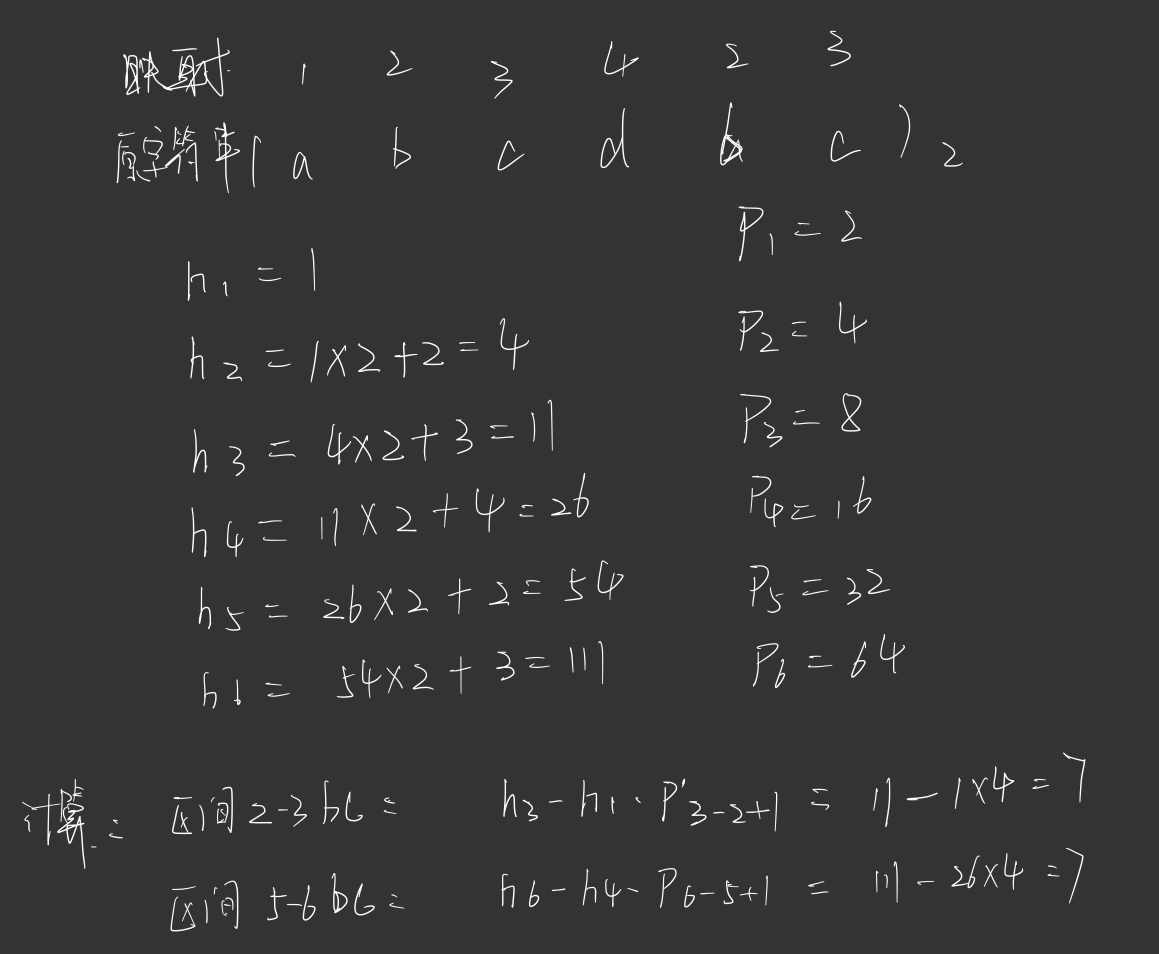 映射 1 2 3 4 2 3
原字符串( a b c d b c )2
P1 = 2
h1 = 1
h2 = 1×2+2=4
P2 = 4
h3 = 4×2+3=11
P3 = 8
h4 = 11×2+4=26
P4=16
h5 = 26×2+2=54
P5=32
h6 = 54×2+3=111
P6=64
计算: 区间2-3 bc = h3-h1·P3-2+1 = 11-1×4=7
区间 5-6 bc = h6-h4·P6-5+1 = 111-26×4=7